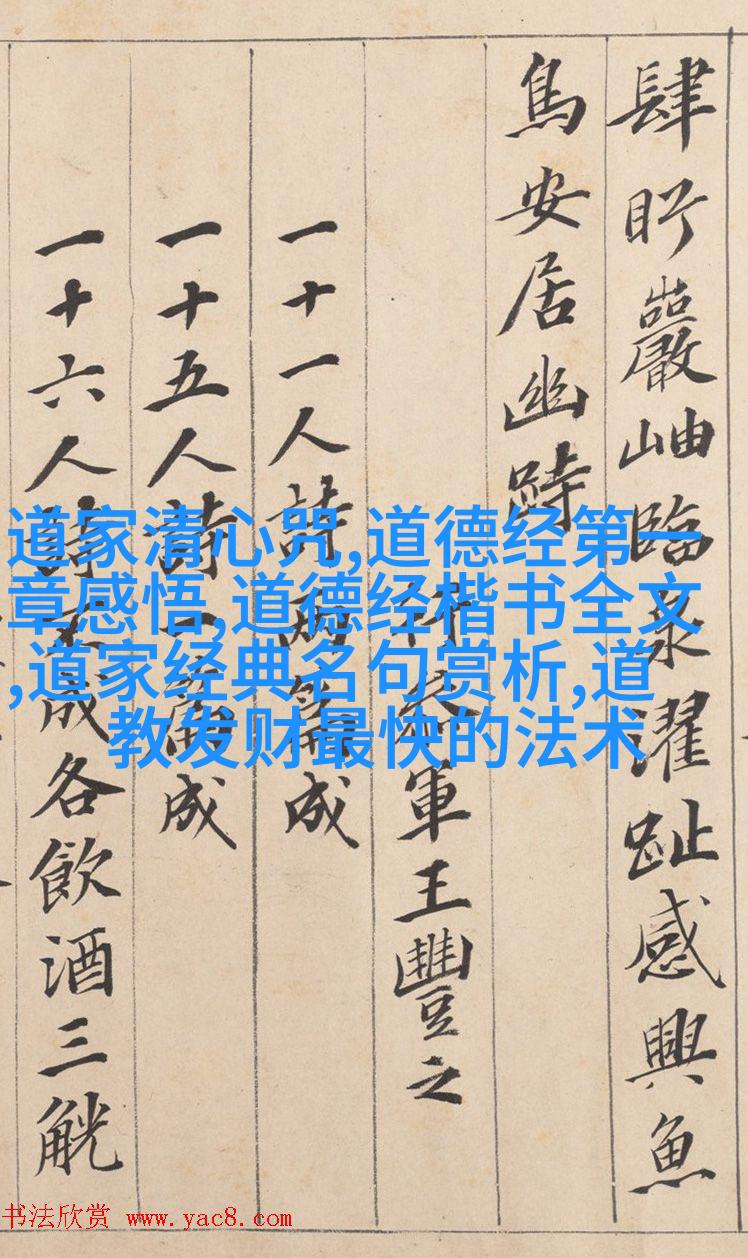 肆眄巖岫臨泉濯趾感興魚
鳥安居幽跱
行參軍王豐之
一十一人詩兩篇成
一十五人詩一篇成
一十六人詩不成各飲酒三觥
道家清心咒,道德经第一
章感悟,道德经楷书全文
,道家经典名句赏析,道
教发财最快的法术
书法欣赏 www.yac8.com